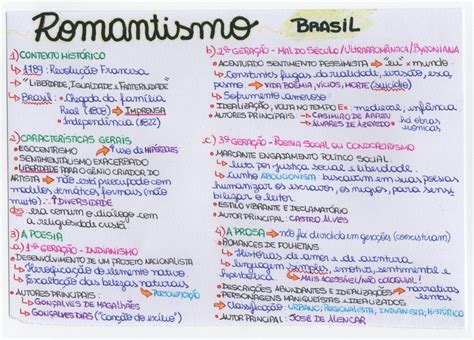 Romantismo BRASIL
1) CONTEXTO HISTÓRICO
↳ 1789: Revolução Francesa
↳ "LIBERDADE, IGUALDADE E FRATERNIDADE"
↳ Brasil: → Chegada da família
Real (1808) → IMPRENSA
→ Independência (1822)
2) CARACTERÍSTICAS GERAIS
• EGOCENTRISMO → uso de HIPÉRBOLES
• SENTIMENTALISMO EXACERBADO
• LIBERDADE PARA O GÊNIO CRIADOR DO
ARTISTA → não está preocupado com
modelos, temáticos, formais (não
muito). ↑ DIVERSIDADE
é comum o diálogo com
a religiosidade cristã
3) A POESIA
a) 1ª GERAÇÃO - INDIANISMO
• DESENVOLVIMENTO DE UM PROJETO NACIONALISTA
↳ Heroificação do elemento nativo
↳ exaltação das belezas naturais
• AUTORES PRINCIPAIS:
↳ GONÇALVES DE MAGALHÃES
↳ GONÇALVES DIAS ("canção do exílio")
b) 2ª GERAÇÃO - MAL DO SÉCULO/ULTRARROMÂNTICA/BYRONIANA
• ACENTUADO SENTIMENTO PESSIMISTA → "eu" x mundo
↳ Constantes fugas da realidade, evasão, esca
pismo → VIDA BOÊMIA, VÍCIOS, MORTE (suicídio)
↳ Sofrimento amoroso
• IDEALIZAÇÃO, VOLTA NO TEMPO Ex: medieval, infância
• AUTORES PRINCIPAIS: → CASIMIRO DE ABREU há obras
→ ÁLVARES DE AZEVEDO → irônicas
c) 3ª GERAÇÃO - POESIA SOCIAL OU CONDOREIRISMO
• MARCANTE ENGAJAMENTO POLÍTICO SOCIAL
↳ luta por justiça social e liberdade.
↳ Cunho ABOLICIONISTA buscavam em suas poesias
humanizar os escravos, os negros, para sensi
bilizar o leitor
• ESTILO VIBRANTE E DECLAMATÓRIO
• AUTOR PRINCIPAL: CASTRO ALVES
4) A PROSA → não foi dividida em gerações (coexistiram)
• ROMANCES DE FOLHETINS
↳ Histórias de amor e aventura
↳ linguagem simples, emotiva, sentimental e
hiperbólica → MAIS ACESSÍVEL/NÃO COLOQUIAL!
• DESCRIÇÕES ABUNDANTES E IDEALIZAÇÕES → narrativas
• PERSONAGENS MANIQUEÍSTAS E IDEALIZADOS lentas
↳ classificação: URBANO, REGIONALISTA, INDIANISTA, HISTÓRICO
• AUTOR PRINCIPAL: JOSÉ DE ALENCAR